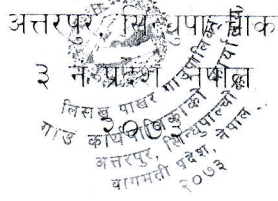 अत्तरपुर, सिन्धुपाल्चोक
३ नं. प्रदेश, नेपाल
लिसंखु पाखर गाउँपालिका
गाउँ कार्यपालिकाको कार्यालय
अत्तरपुर, सिन्धुपाल्चोक
वागमती प्रदेश, नेपाल
२०७३